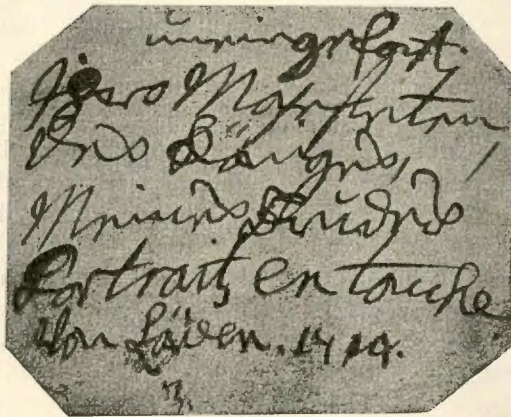 uneingefast.
Ihero Mayesteten
des Königes,
Meines Bruders
Portrait, en touche
von Läven. 1719.